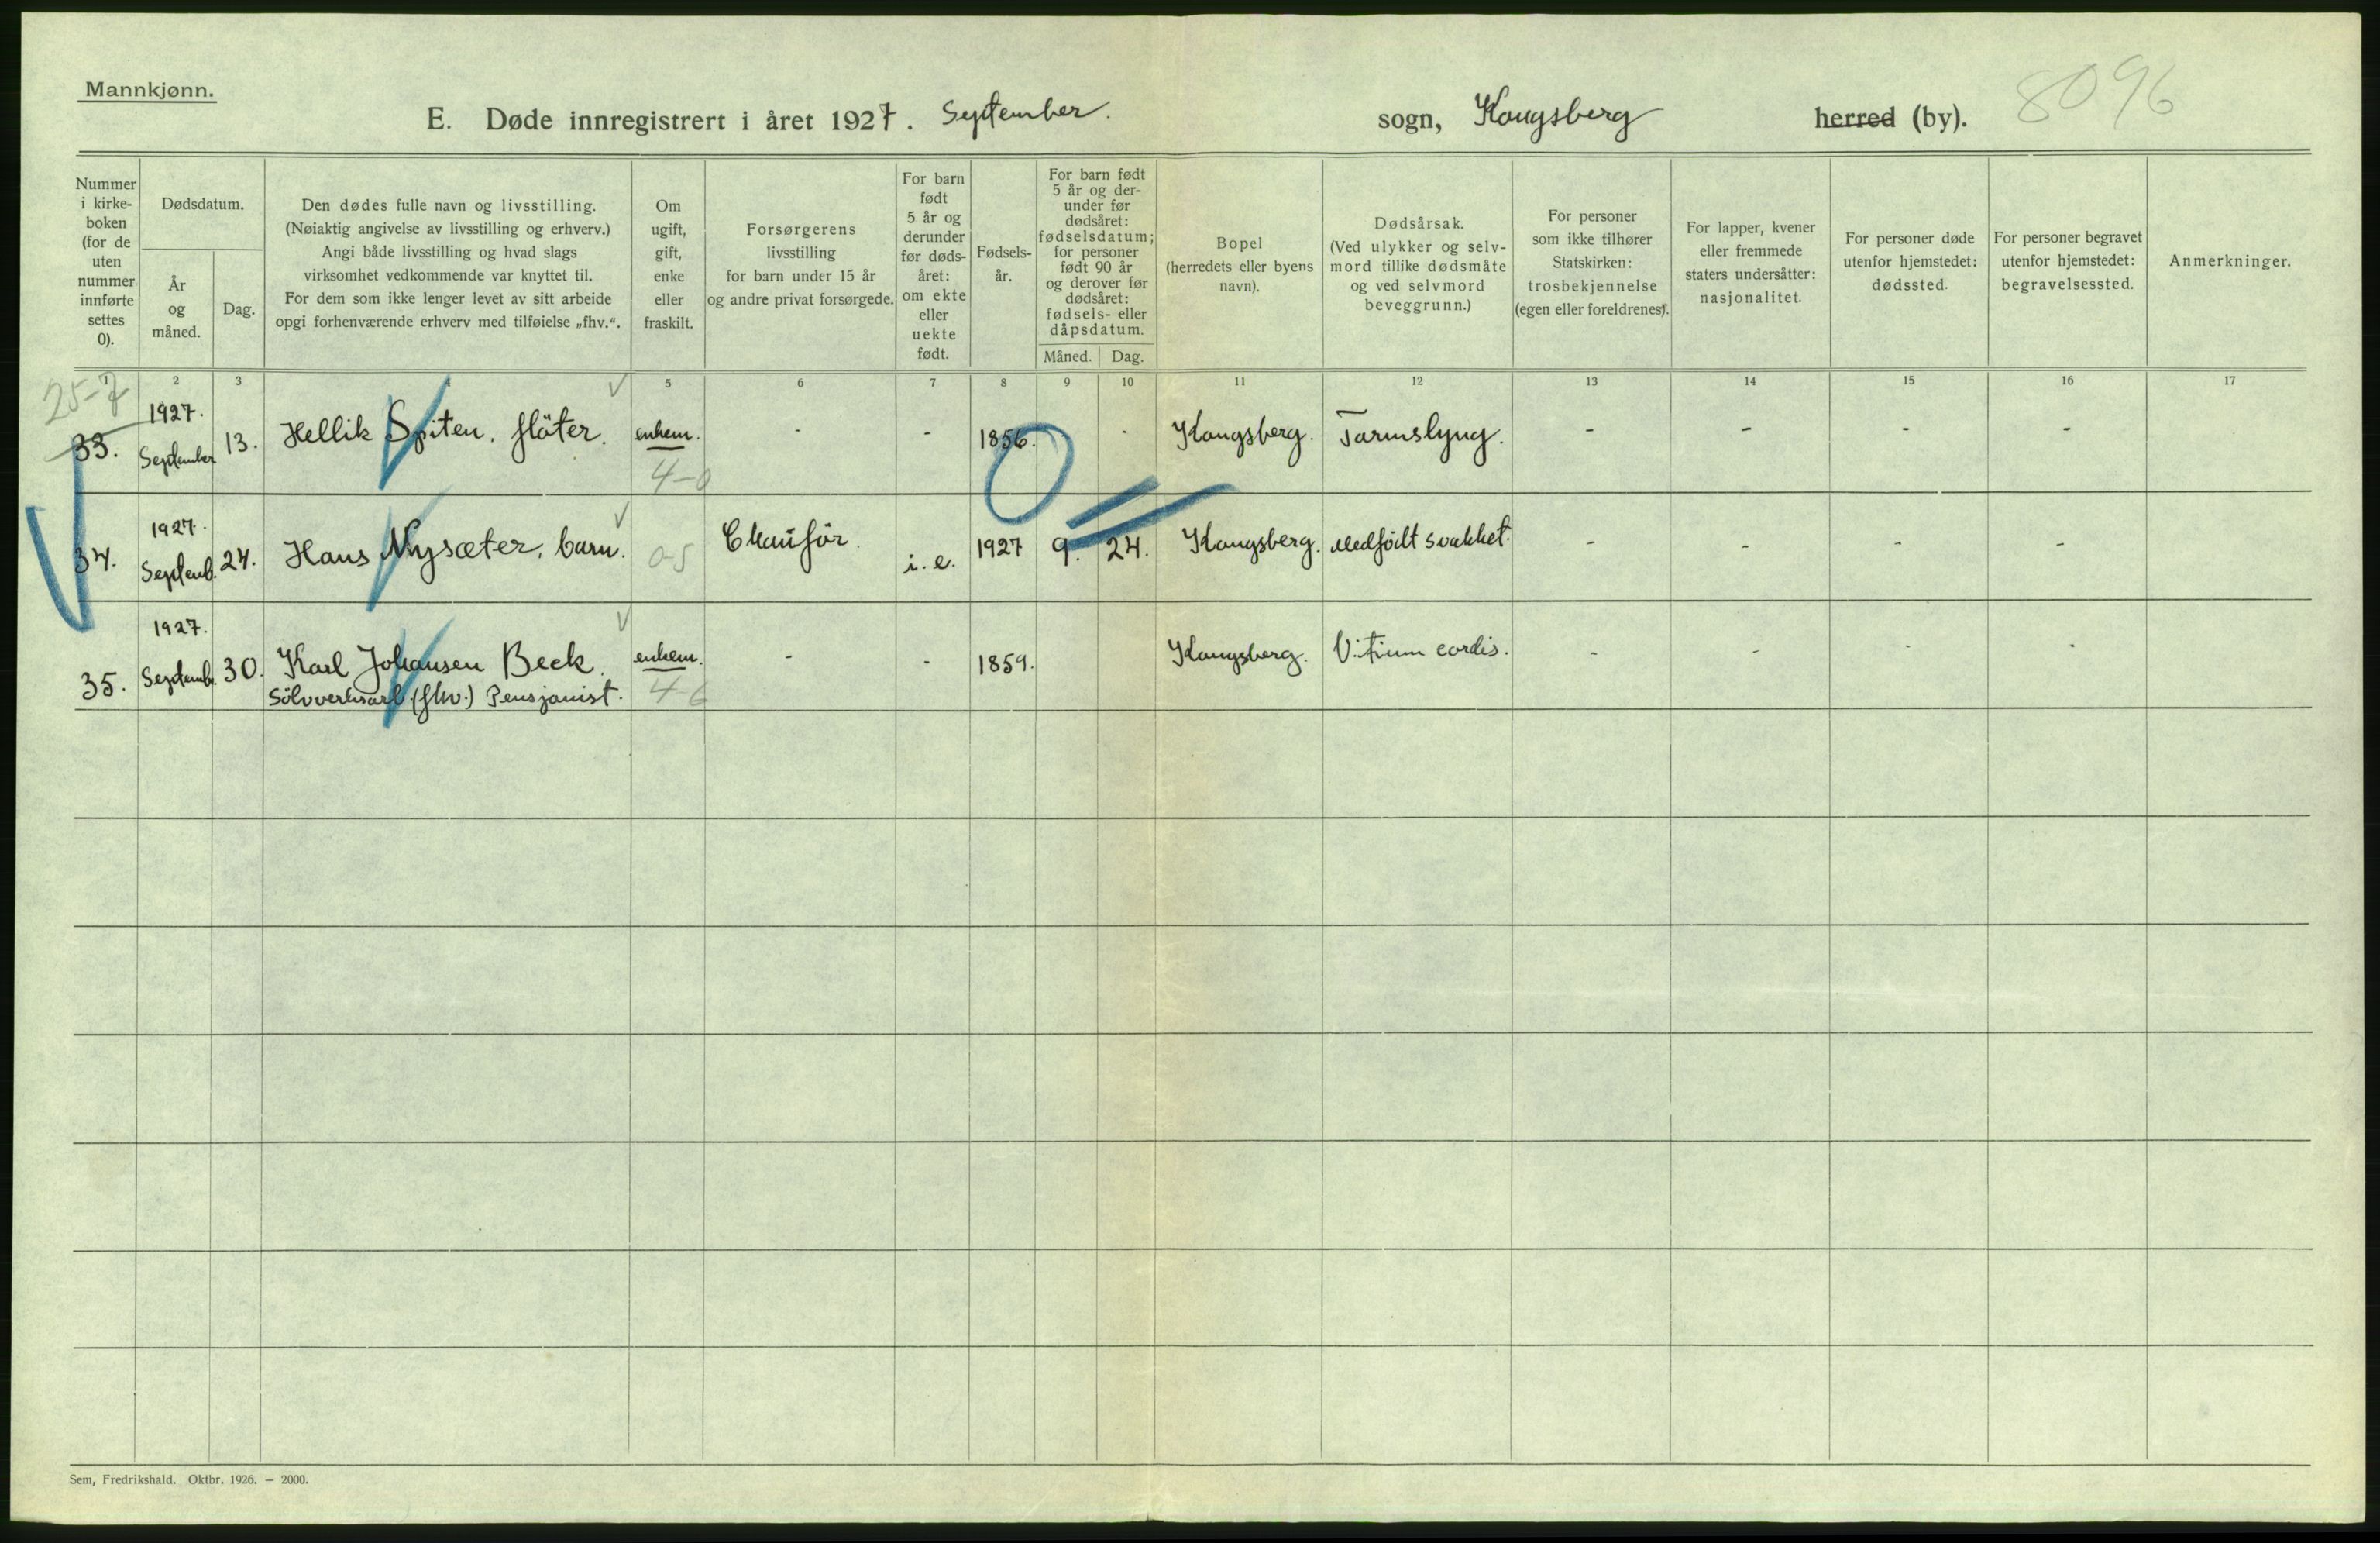 Mannkjønn.
E. Døde innregistrert i året 1927. September. sogn, Kongsberg herred (by). 8096
Nummer i kirke-boken (for de uten nummer innførte settes 0).
Dødsdatum.
År og måned.
Dag.
Den dødes fulle navn og livsstilling.
(Nøiaktig angivelse av livsstilling og erhverv.)
Angi både livsstilling og hvad slags
virksomhet vedkommende var knyttet til.
For dem som ikke lenger levet av sitt arbeide
opgi forhenværende erhverv med tilføielse „fhv.“.
Om
ugift,
gift,
enke
eller
fraskilt.
Forsørgerens
livsstilling
for barn under 15 år
og andre privat forsørgede.
For barn
født
5 år og
derunder
før døds-
året:
om ekte
eller
uekte
født.
Fødsels-
år.
For barn født
5 år og der-
under før
dødsåret:
fødselsdatum;
for personer
født 90 år
og derover før
dødsåret:
fødsels- eller
dåpsdatum.
Måned. Dag.
Bopel
(herredets eller byens
navn).
Dødsårsak.
(Ved ulykker og selv-
mord tillike dødsmåte
og ved selvmord
beveggrunn.)
For personer
som ikke tilhører
Statskirken:
trosbekjennelse
(egen eller foreldrenes).
For lapper, kvener
eller fremmede
staters undersåtter:
nasjonalitet.
For personer døde
utenfor hjemstedet:
dødssted.
For personer begravet
utenfor hjemstedet:
begravelsessted.
Anmerkninger.
1 2 3 4 5 6 7 8 9 10 11 12 13 14 15 16 17
25-7
33. 1927. September 13. Hellik Spiten, flöter. enkem. - - 1856. - Kongsberg. Tarmslyng. - - - -
4-0
34. 1927. Septemb. 24. Hans Nysæter, barn. Chauför. i.e. 1927 9. 24. Kongsberg. Medfödt svakhet. - - - -
0-5
35. 1927. Septemb. 30. Karl Johansen Beck. enkem. - - 1859. Kongsberg. Vitium cordis. - - - -
Sölvverksarb (fhv.) Pensjonist. 4-6
Sem, Fredrikshald. Oktbr. 1926. — 2000.